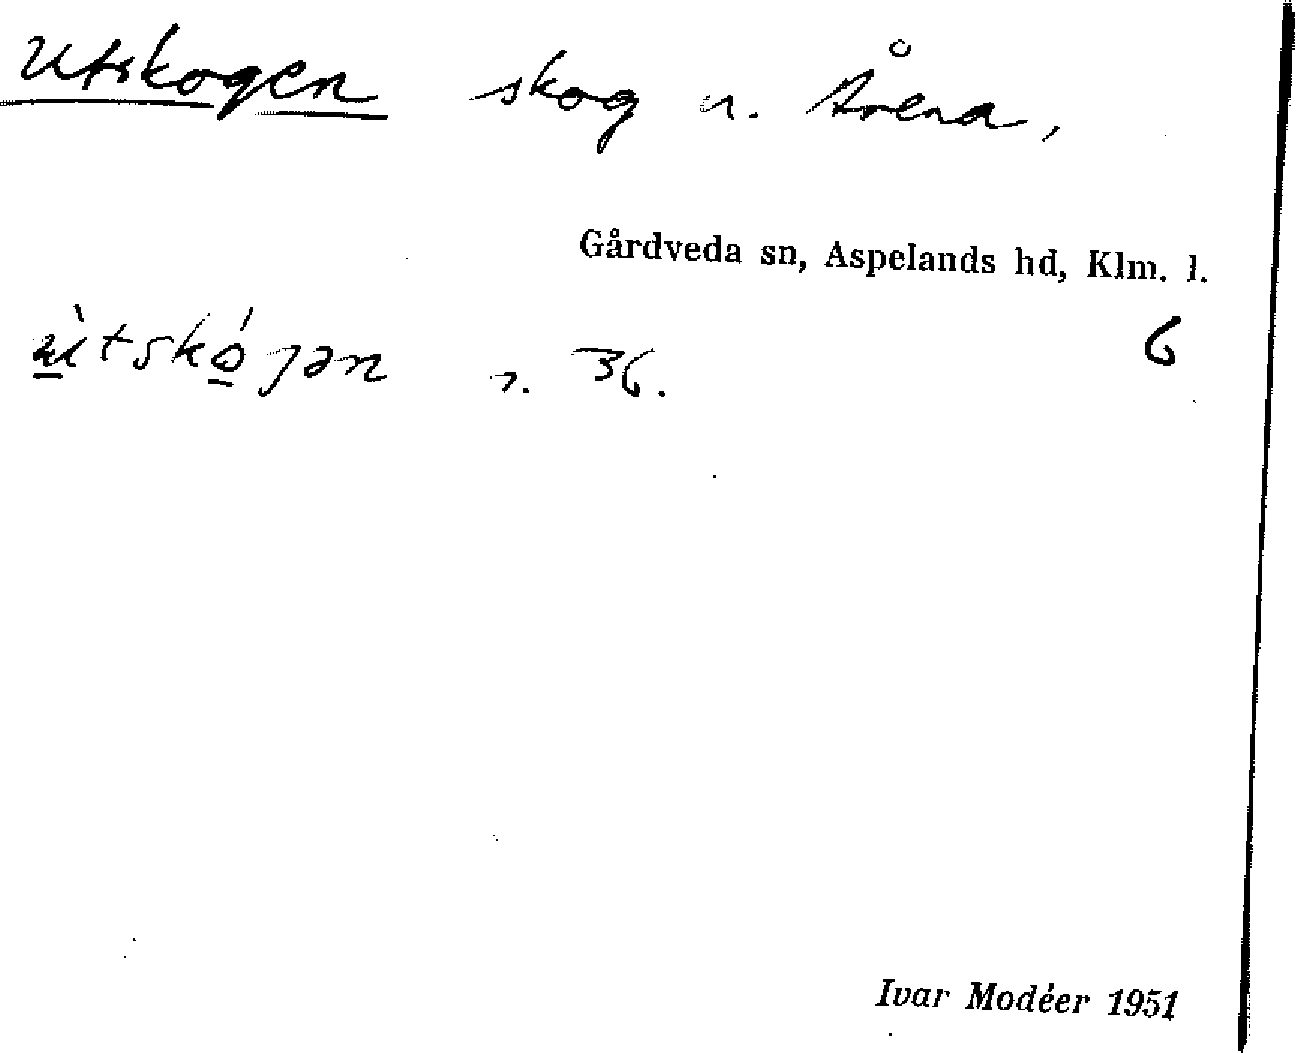 Utskogen skog n. Årena,
Gårdveda sn, Aspelands hd, Klm. l.
ùtskójən s. 36.
6
Ivar Modéer 1951